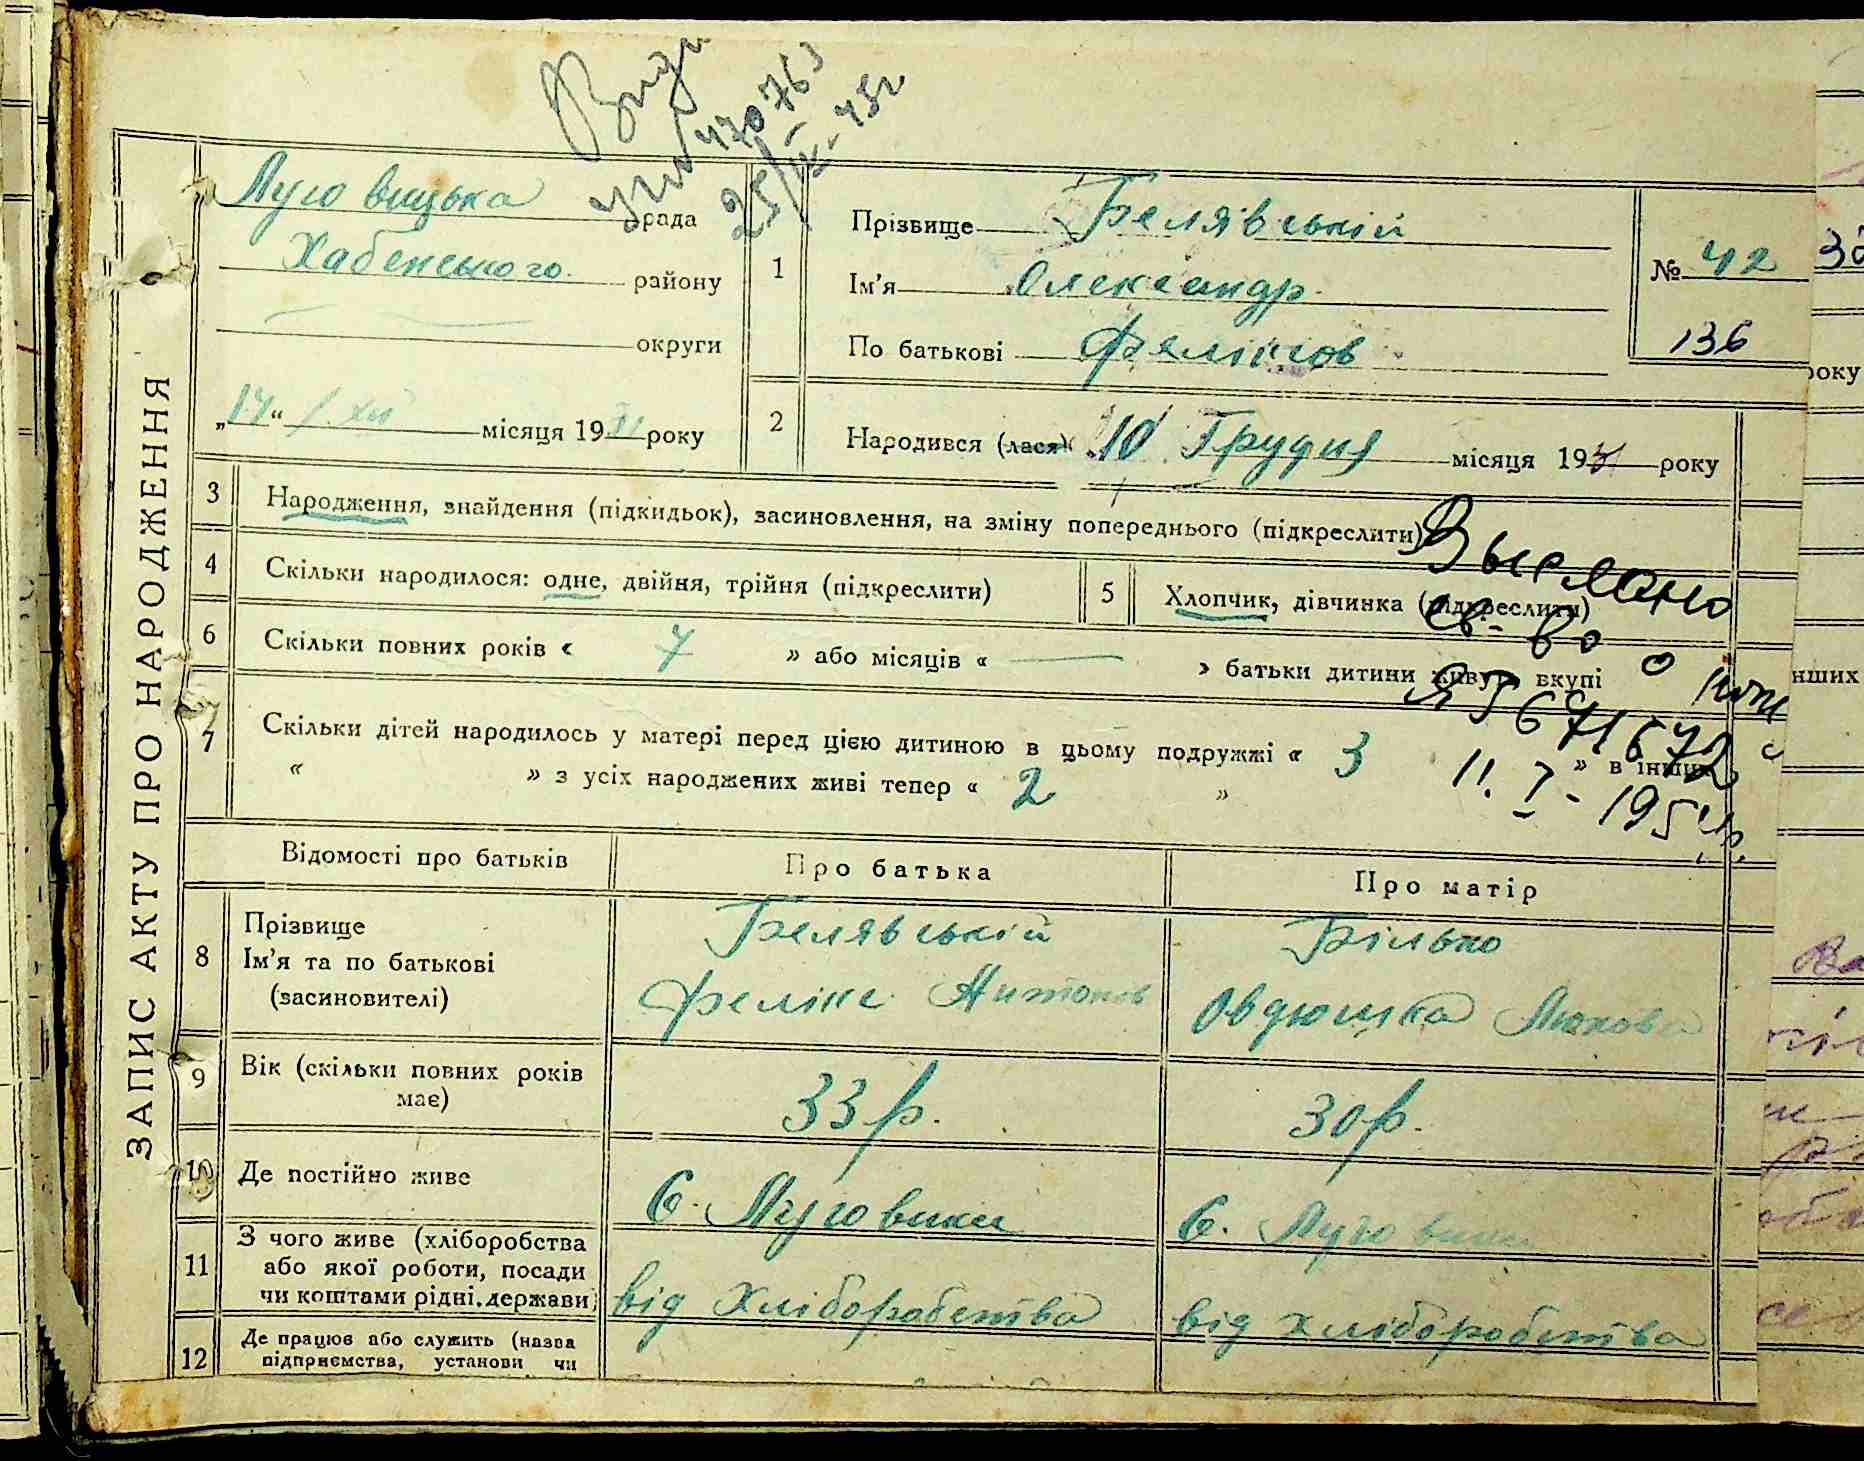 ЗАПИС АКТУ ПРО НАРОДЖЕННЯ
Луговицька рада
Хабенського району
округи
„14“ XII місяця 1931 року
25/IX-45г
1
Прізвище Белявській
Ім'я Олександр
По батькові Феліксов
№ 42
136
2
Народився (лася) 10 Грудня місяця 193 року
3 Народження, знайдення (підкидьок), засиновлення, на зміну попереднього (підкреслити)
4 Скільки народилося: одне, двійня, трійня (підкреслити)
5 Хлопчик, дівчинка (підкреслити)
6 Скільки повних років « 7 » або місяців « — » батьки дитини живуть вкупі
7 Скільки дітей народилось у матері перед цією дитиною в цьому подружжі « 3 » в інших
« » з усіх народжених живі тепер « 2 »
св-во о
ЯТ 671672
11.I-195
Відомості про батьків
Про батька
Про матір
8 Прізвище
Ім'я та по батькові
(засиновителі)
Белявській
Фелікс Антонов
Білько
Овдюшка
9 Вік (скільки повних років
має)
33 р.
30 р.
10 Де постійно живе
с. Луговики
с. Луговики
11 З чого живе (хліборобства
або якої роботи, посади
чи коштами рідні, держави)
від хліборобства
від хліборобства
12 Де працює або служить (назва
підприємства, установи чи
року
нших